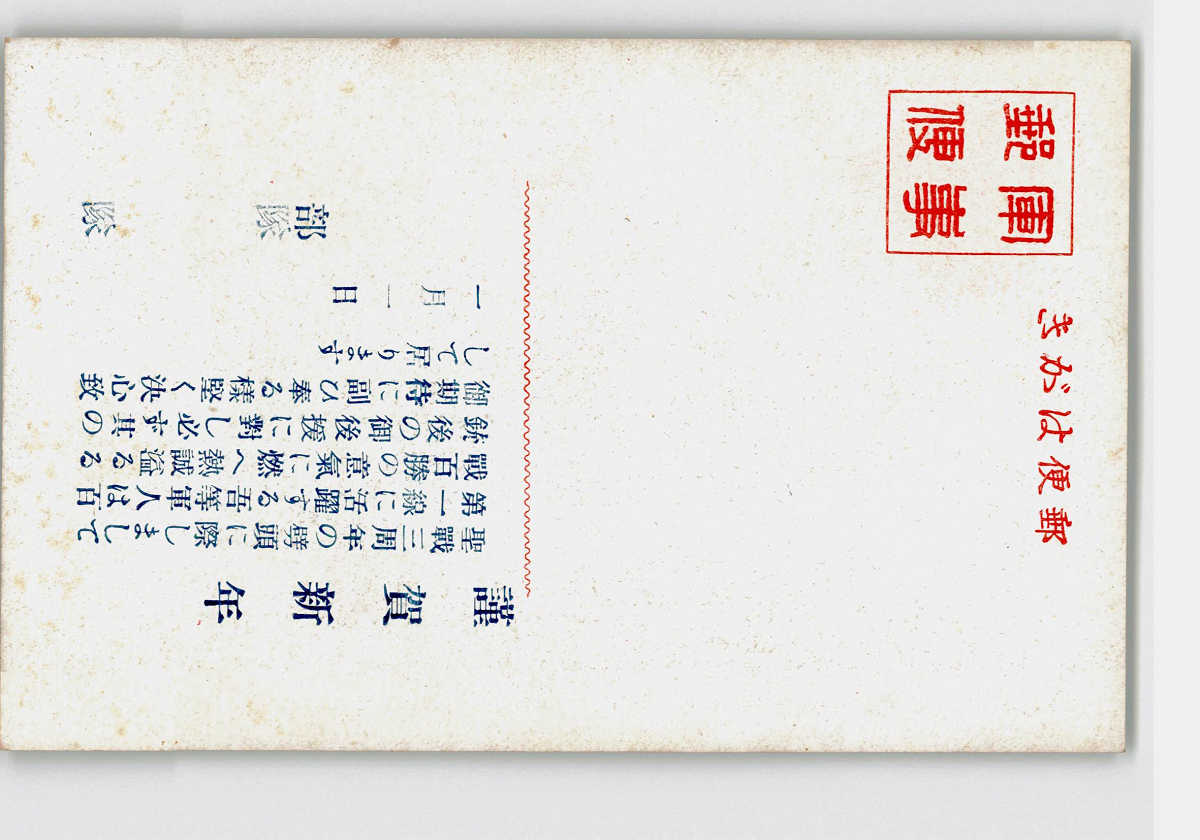 郵便はがき
軍事
郵便
謹賀新年
聖戰三周年の劈頭に際しまして
第一線に活躍する吾等軍人は百
戰百勝の意氣に燃へ熱誠溢るる
銃後の御後援に對し必ず其の
御期待に副ひ奉る樣堅く決心致
して居ります
一月一日
部隊　隊